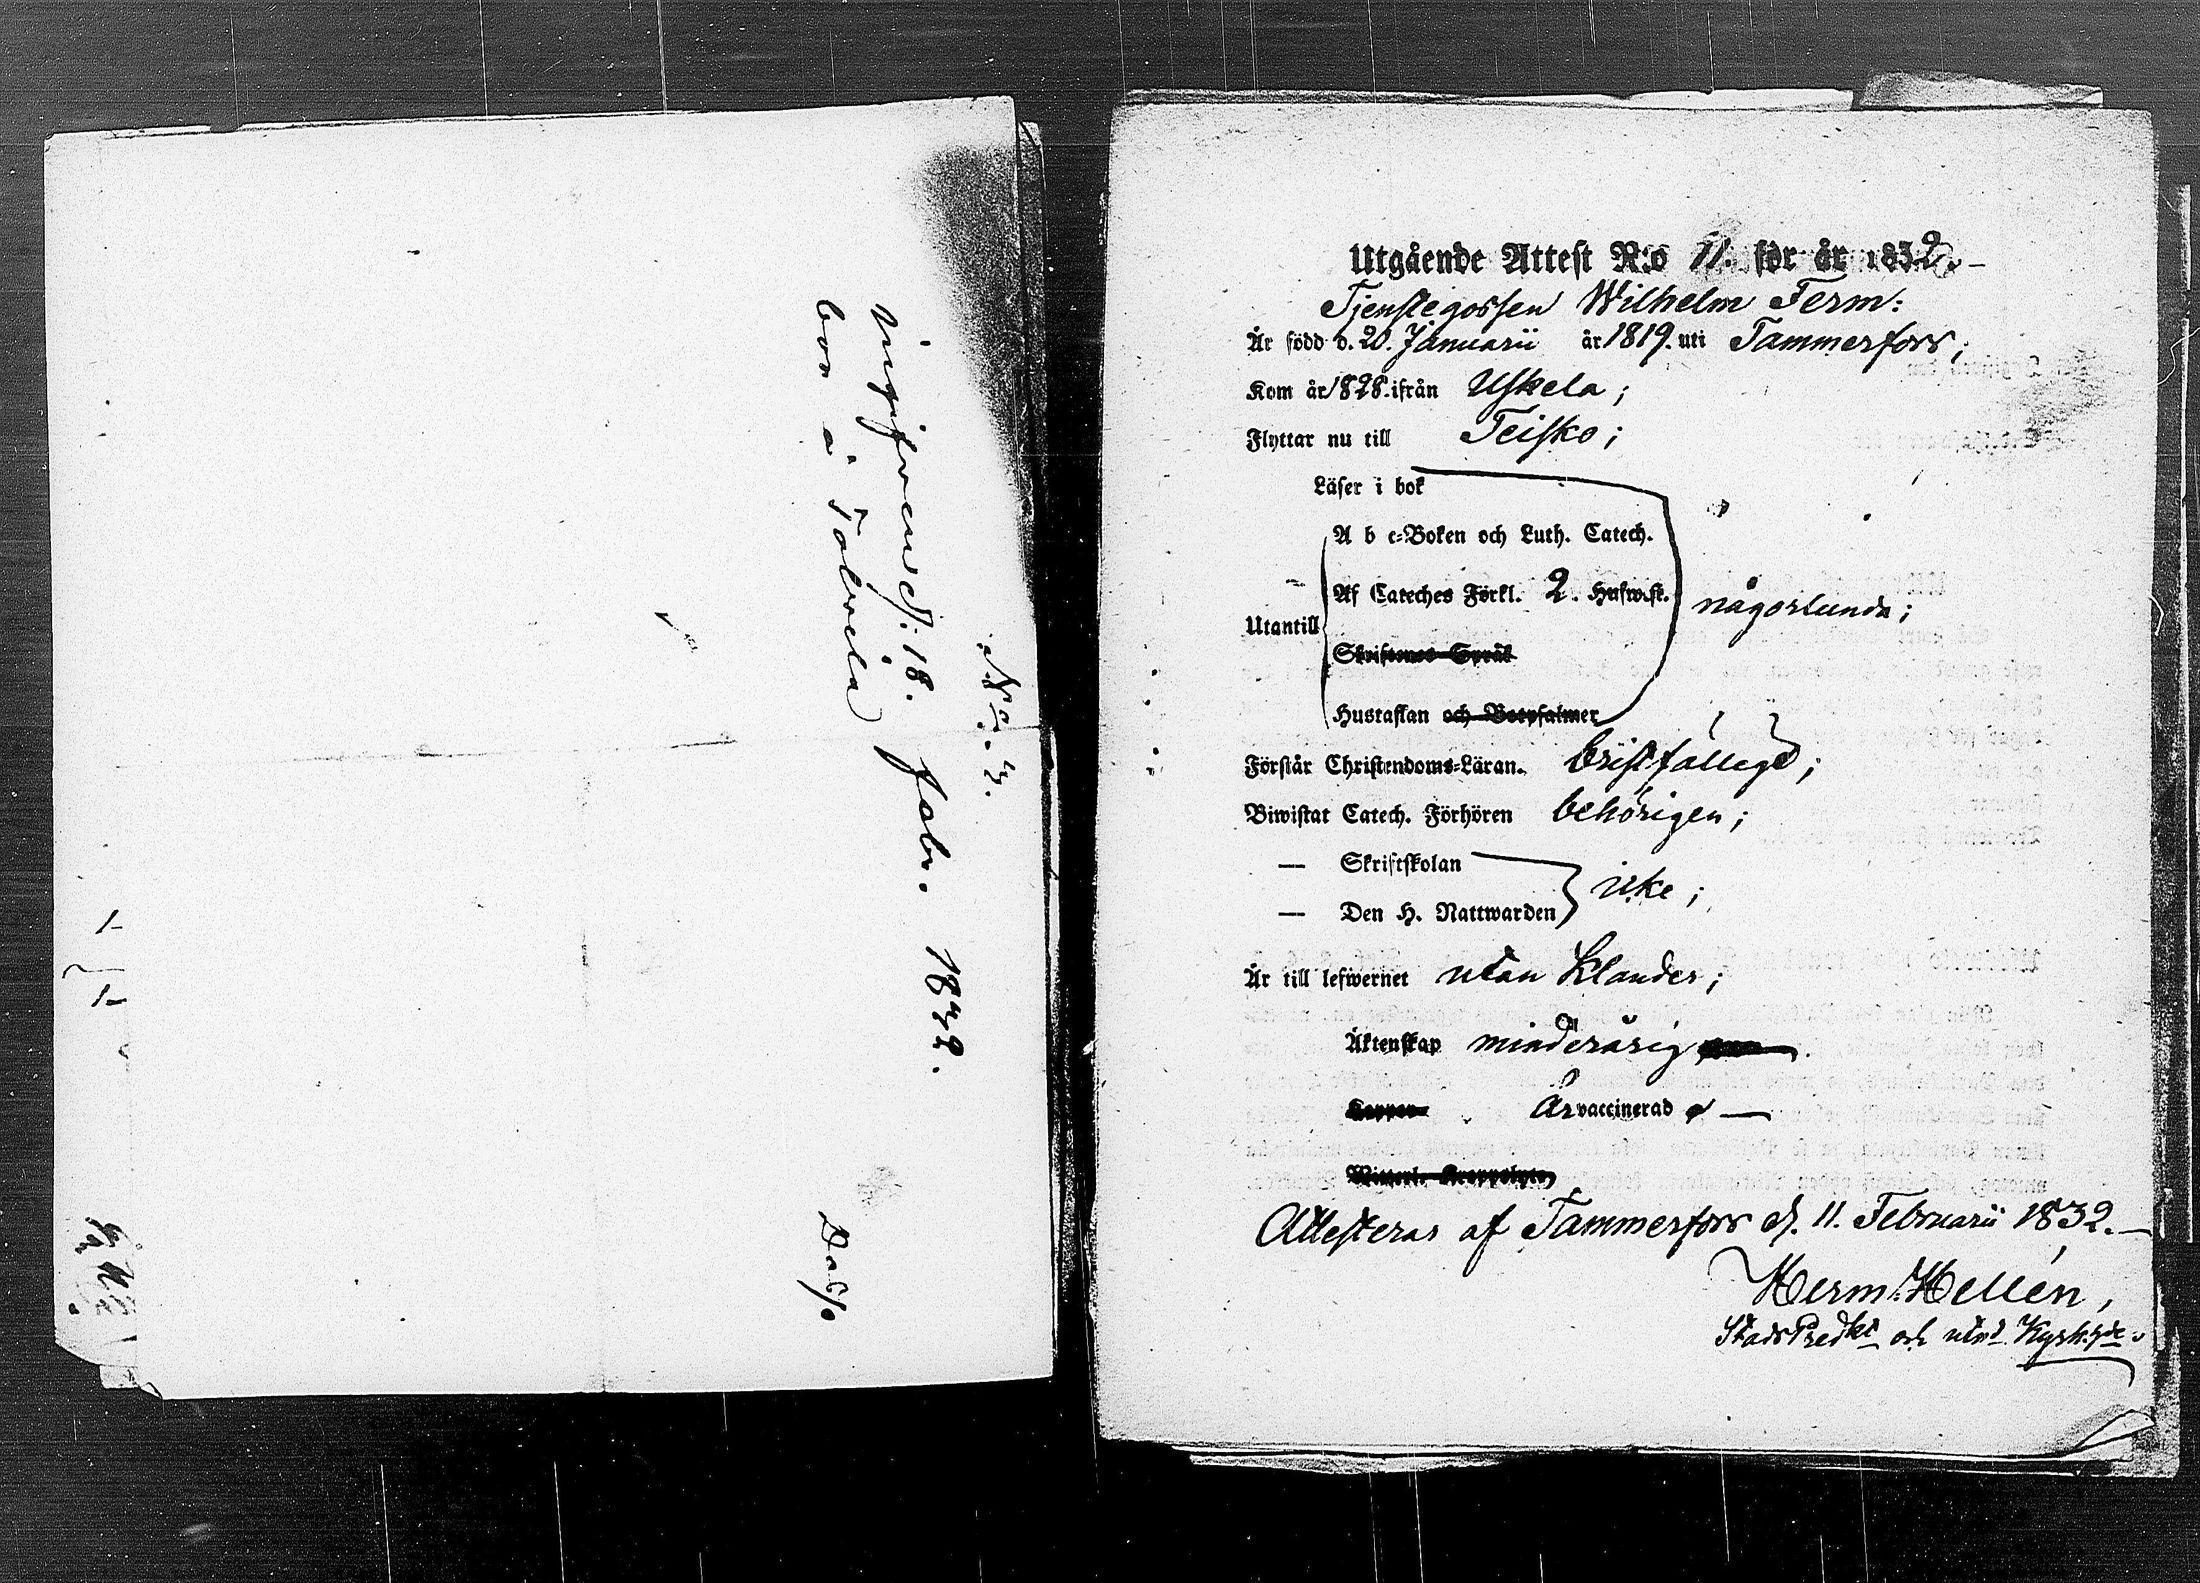 No. 4.
d. 18. febr. 1832.
bor å
Utgående Attest N:o 11. för år 1832.
Tjenstegossen Wilhelm Ferm:
Är född d. 20. Januarii år 1819. uti Tammerfors;
Kom år 1828. ifrån Uskela;
Flyttar nu till Teisko;
Läser i bok
A b c-Boken och Luth. Catech.
Af Cateches Förkl. 2. Hufw.st. någorlunda;
Utantill
Skriftenes Språk
Hustaflan och Botpsalmer
Förstår Christendoms-Läran. bristfälligt;
Biwistat Catech. Förhören behörigen;
— Skriftskolan
— Den H. Nattwarden icke;
Är till lefwernet utan klander;
Äktenskap minderårig
Koppor Är vaccinerad —
Witterl. Kroppslyte
Attesteras af Tammerfors d. 11. Februarii 1832.—
Herm. Hellén,